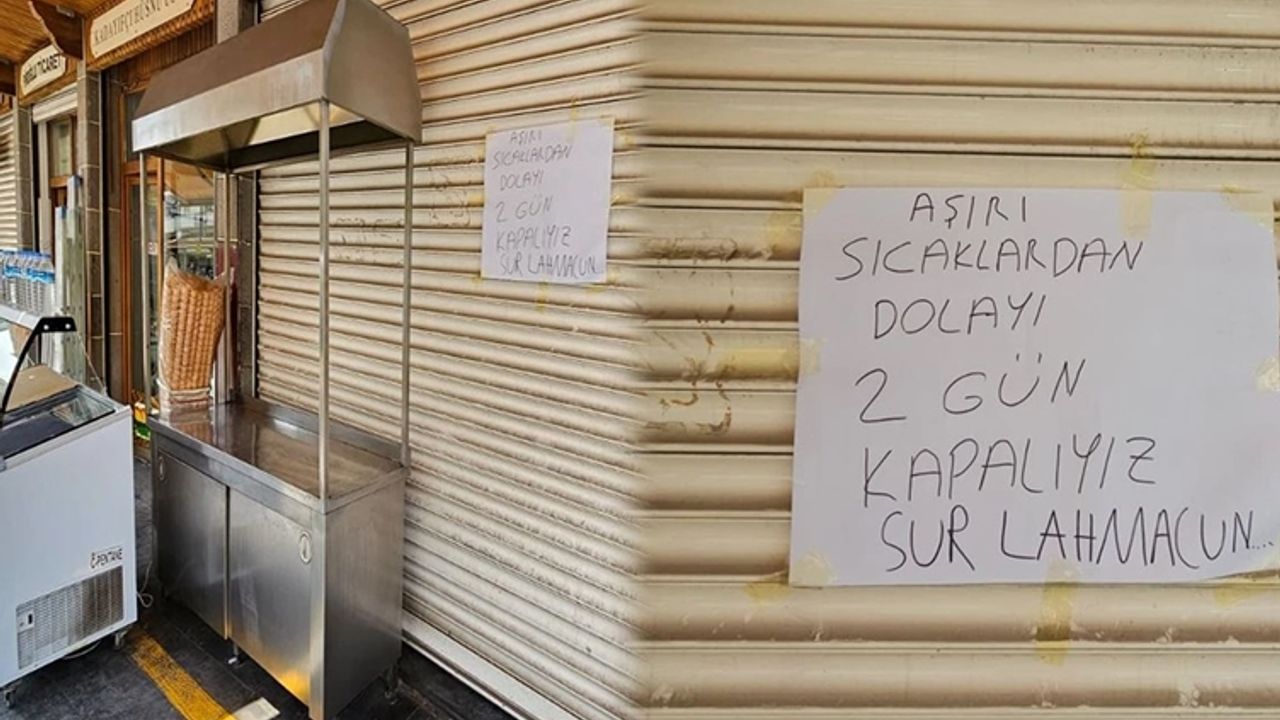 KADAYIFÇI HÜSNÜ
TİCARET
AŞIRI
SICAKLARDAN
DOLAYI
2 GÜN
KAPALIYIZ
SUR LAHMACUN...
C-PENTANE
AŞIRI
SICAKLARDAN
DOLAYI
2 GÜN
KAPALIYIZ
SUR LAHMACUN...